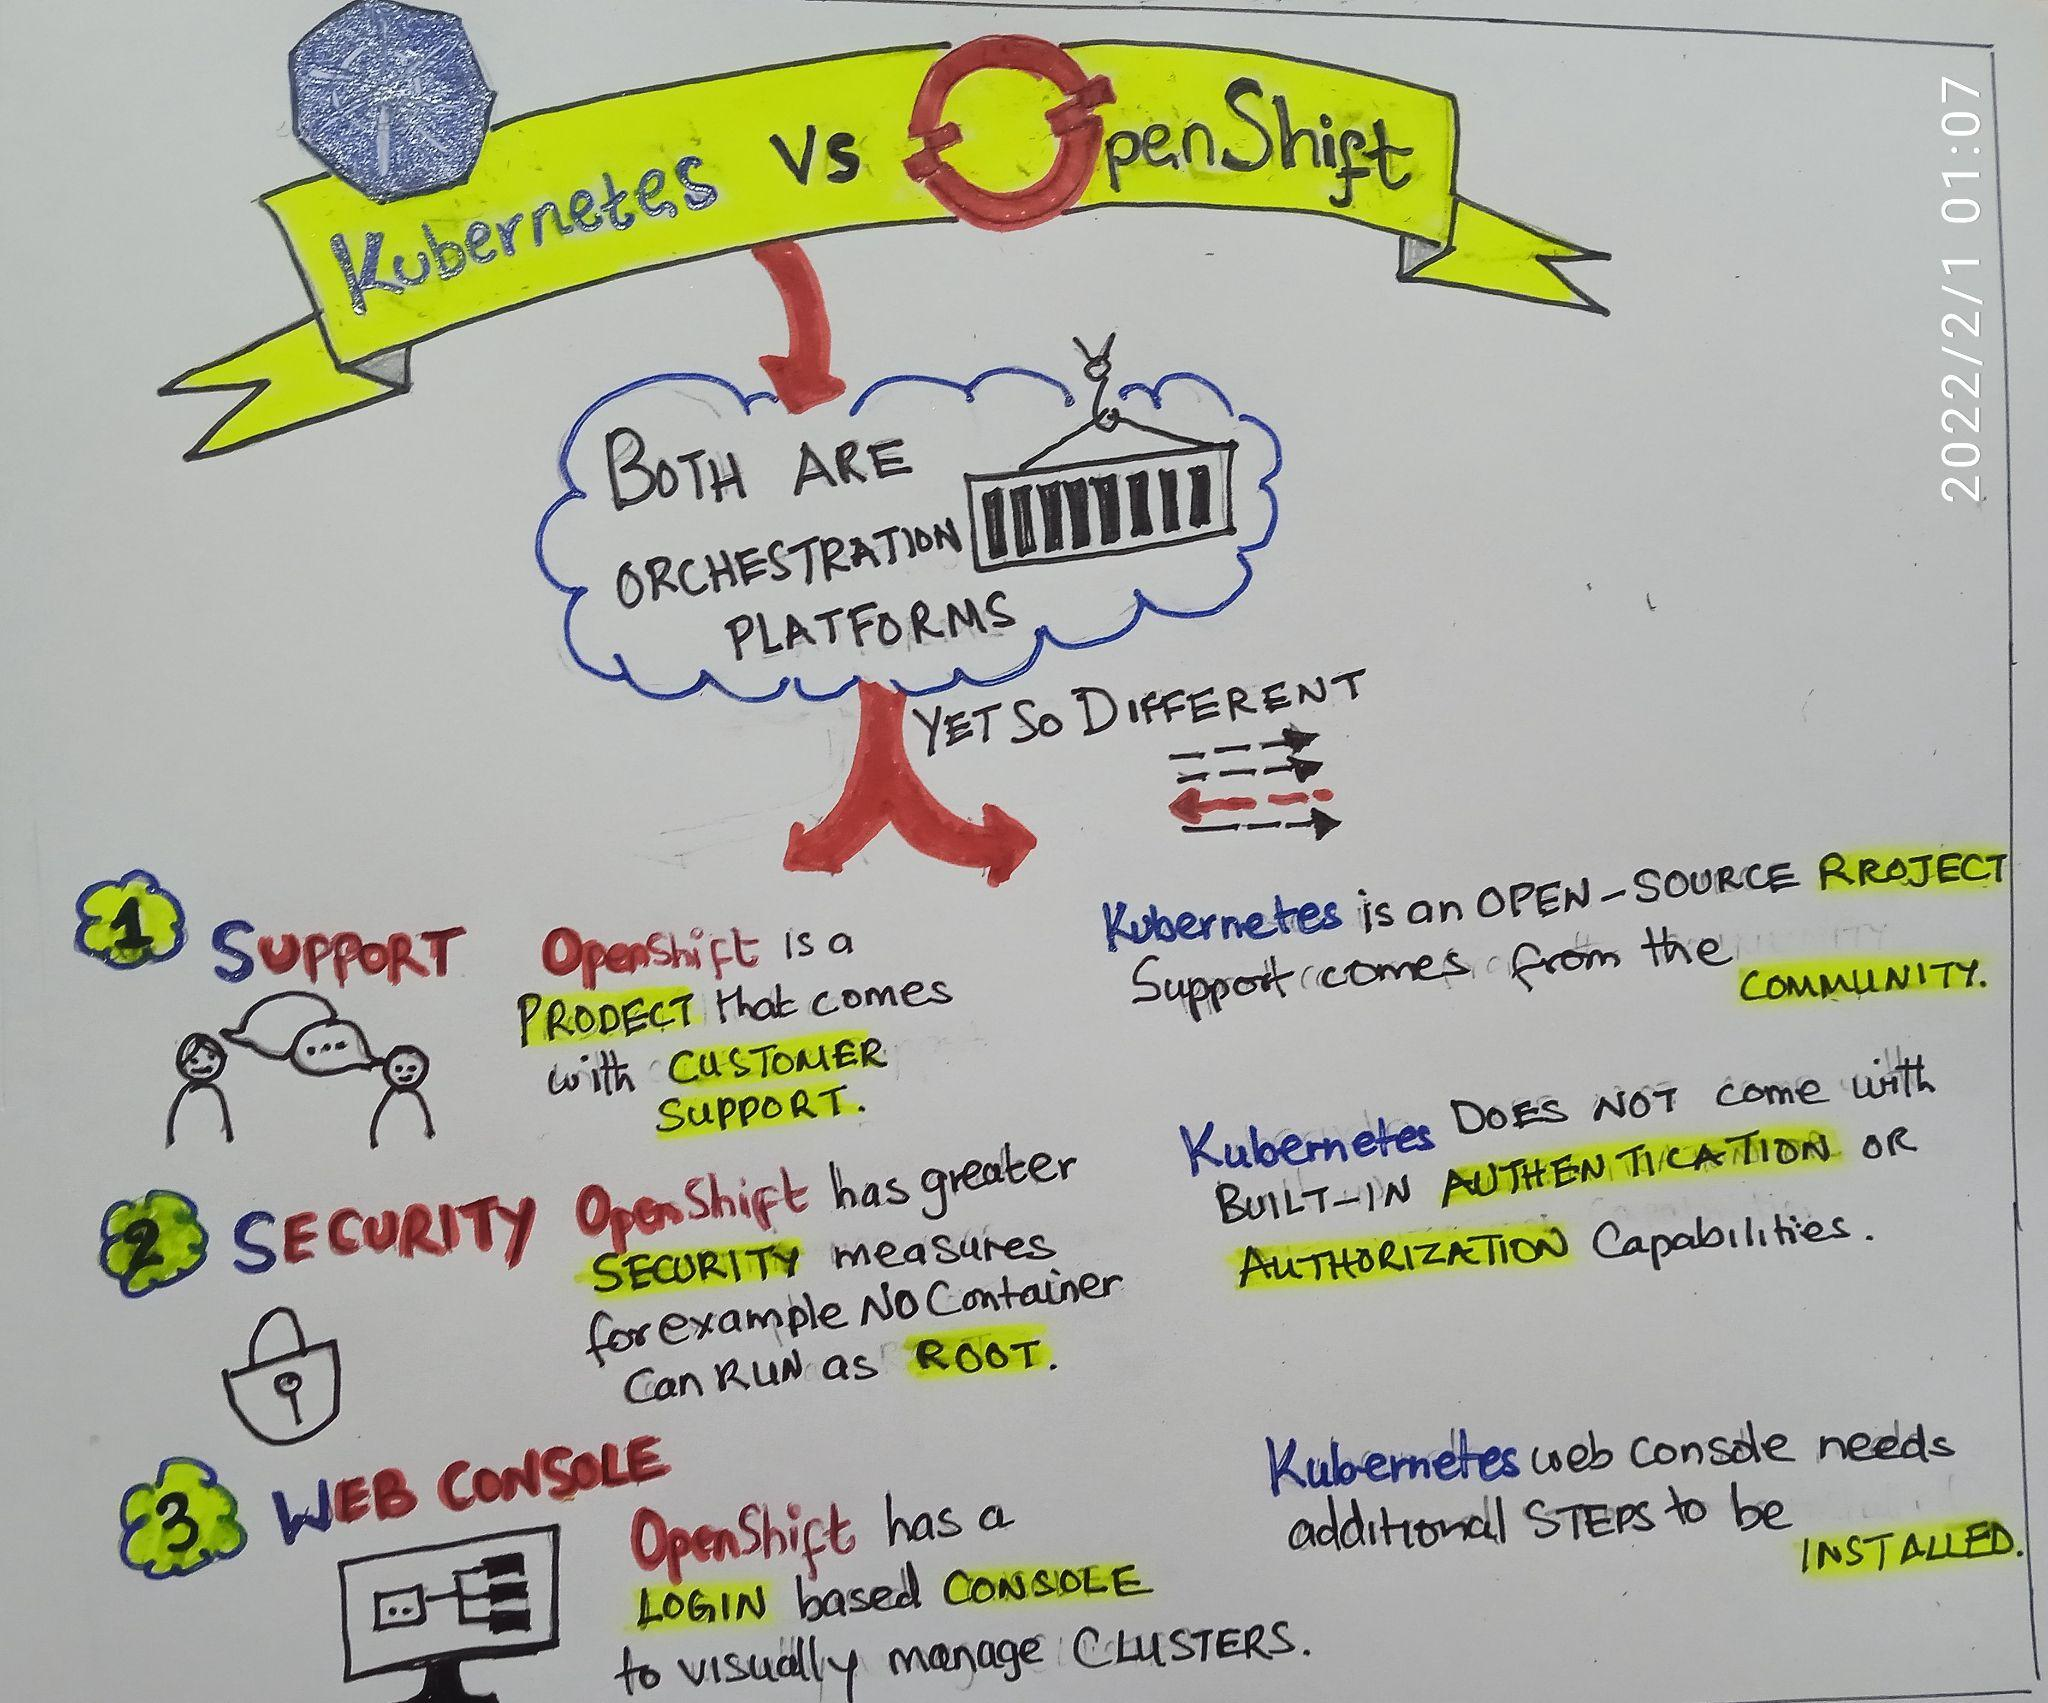 Kubernetes Vs OpenShift
2022/2/1 01:07
BOTH ARE
ORCHESTRATION
PLATFORMS
YET SO DIFFERENT
1
SUPPORT
OpenShift is a
PRODECT that comes
with CUSTOMER
SUPPORT.
Kubernetes is an OPEN-SOURCE RROJECT
Support comes from the
COMMUNITY.
2
SECURITY
OpenShift has greater
SECURITY measures
for example NO Container
Can RUN as ROOT.
Kubernetes DOES NOT come with
BUILT-IN AUTHENTICATION OR
AUTHORIZATION Capabilities.
3
WEB CONSOLE
OpenShift has a
LOGIN based CONSOLE
to visually manage CLUSTERS.
Kubernetes web console needs
additional STEPS to be
INSTALLED.